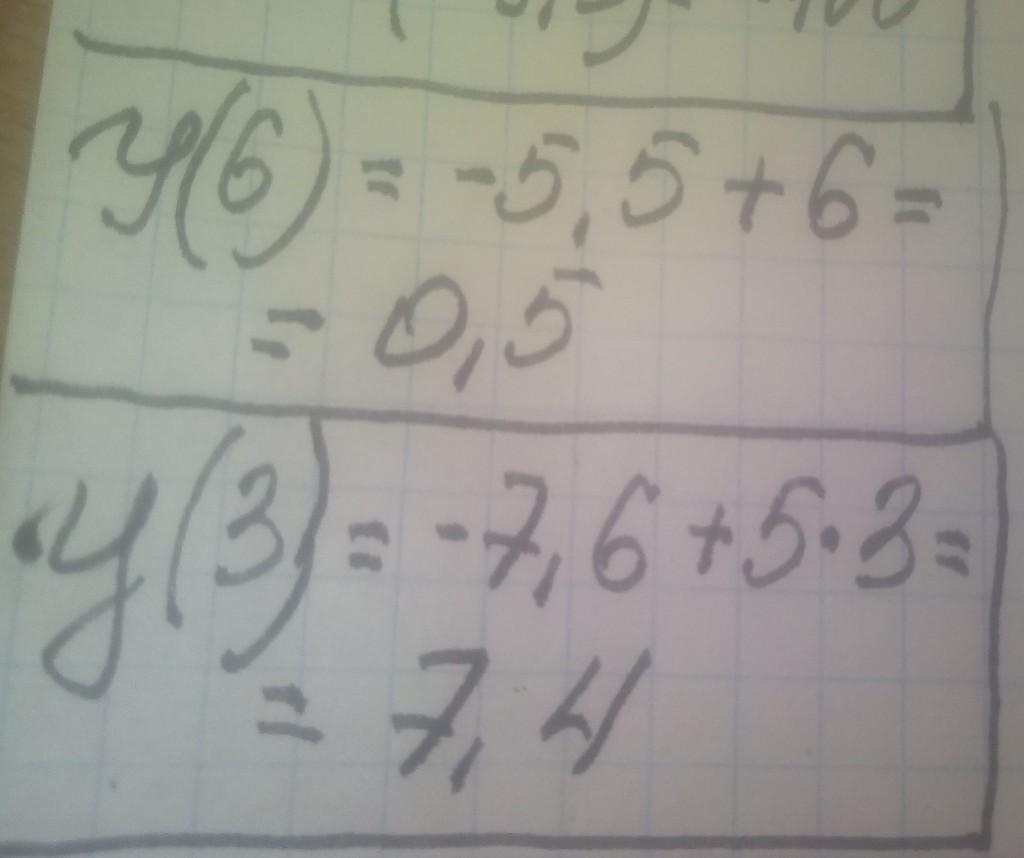 y(6) = -5,5 + 6 =
= 0,5
y(3) = -7,6 + 5·3 =
= 7,4